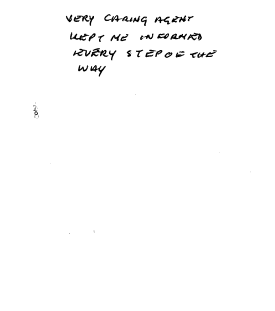 VERY CARING AGENT
KEPT ME INFORMED
EVERY STEP OF THE
WAY